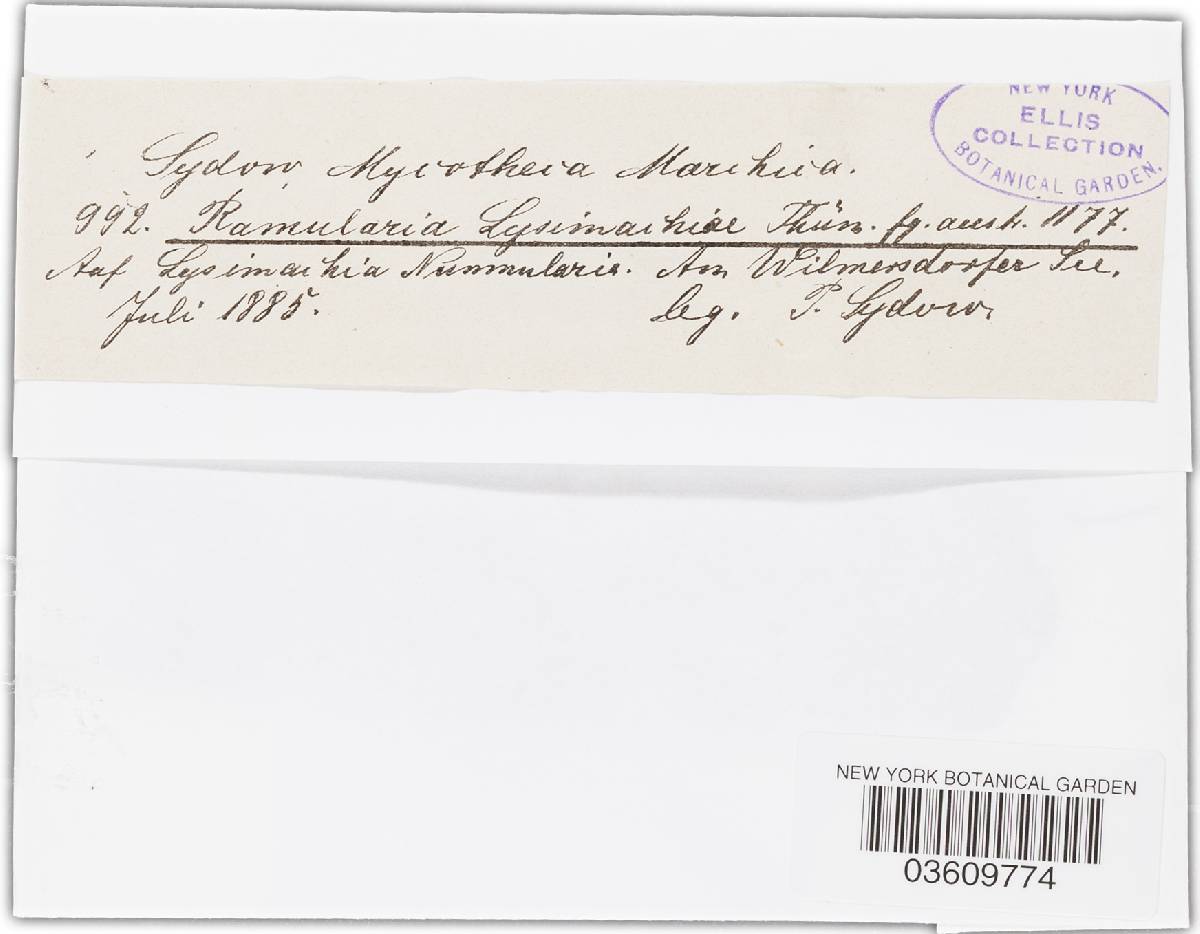 NEW YORK
ELLIS
COLLECTION
BOTANICAL GARDEN.
Sydow, Mycotheca Marchica.
992. Ramularia Lysimachiae Thüm. fg. austr. 1177.
Auf Lysimachia Nummularia. Am Wilmersdorfer See.
Juli 1885. leg. P. Sydow.
NEW YORK BOTANICAL GARDEN
03609774